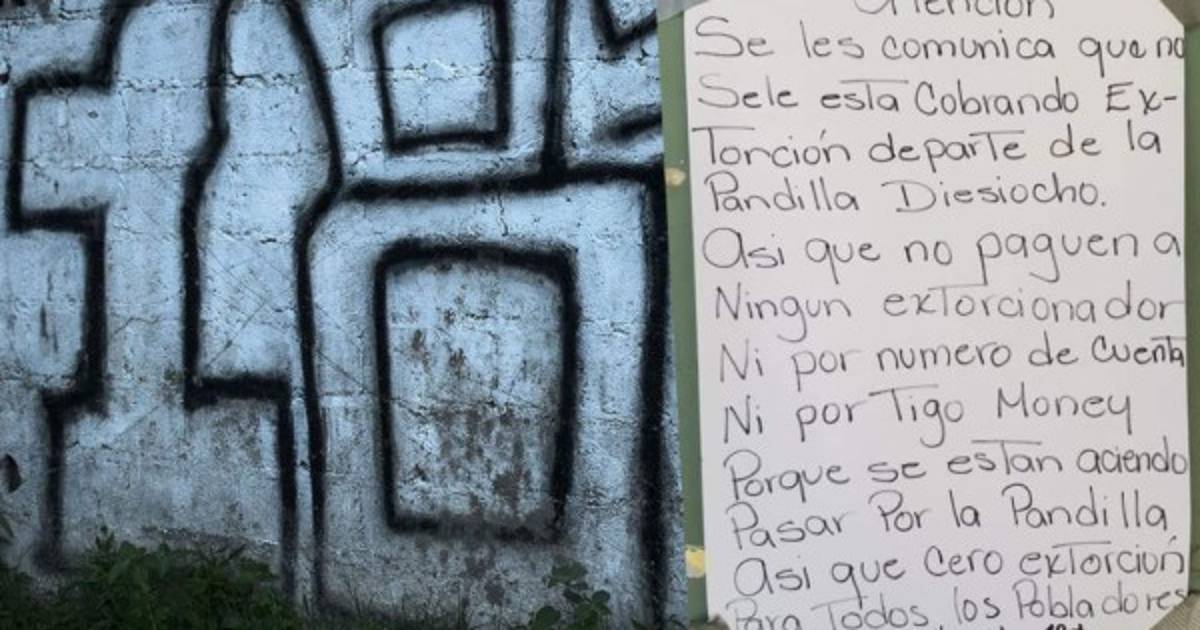 18
Atención
Se les comunica que no
Sele esta Cobrando Ex-
Torción departe de la
Pandilla Diesiocho.
Asi que no paguen a
Ningun extorcionador
Ni por numero de Cuenta
Ni por Tigo Money
Porque se estan aciendo
Pasar Por la Pandilla
Asi que Cero extorción
Para Todos los Pobladores